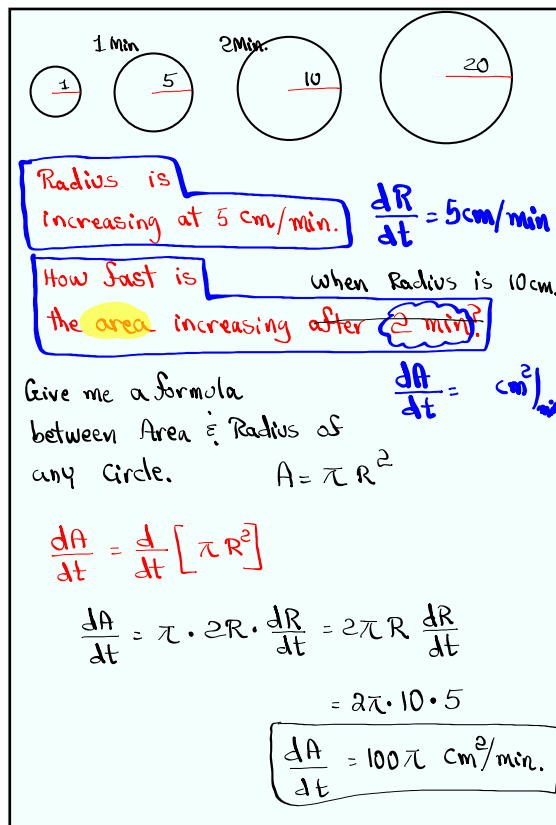 1 Min 2Min.
1 5 10 20
Radius is
increasing at 5 cm/min.
dR/dt = 5cm/min
How fast is when Radius is 10cm.
the area increasing after 2 min?
dA/dt = cm²/min
Give me a formula
between Area & Radius of
any Circle. A = π R²
dA/dt = d/dt [π R²]
dA/dt = π · 2R · dR/dt = 2π R dR/dt
= 2π · 10 · 5
dA/dt = 100π cm²/min.